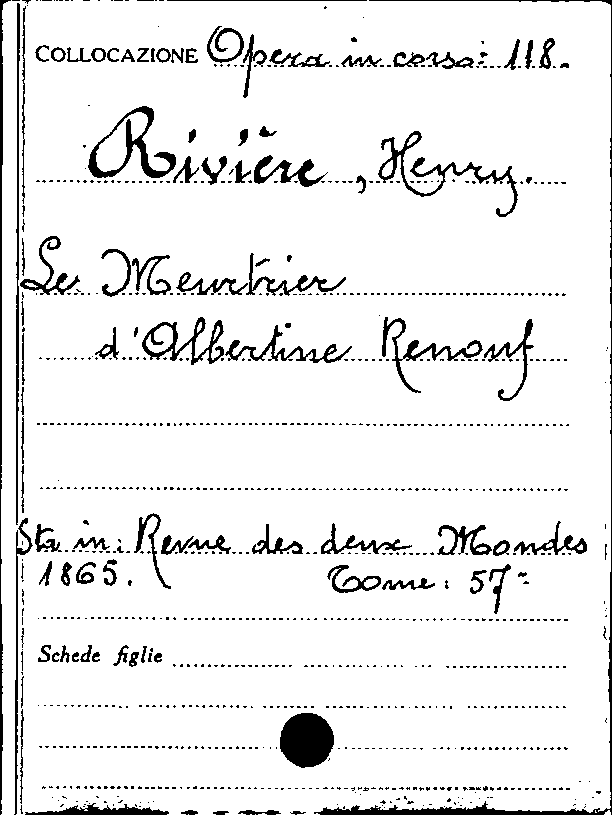 COLLOCAZIONE Opera in corso: 118.
Rivière, Henry.
Le Meurtrier
d'Albertine Renouf
Sta in: Revue des deux Mondes
1865. Tome: 57=
Schede figlie